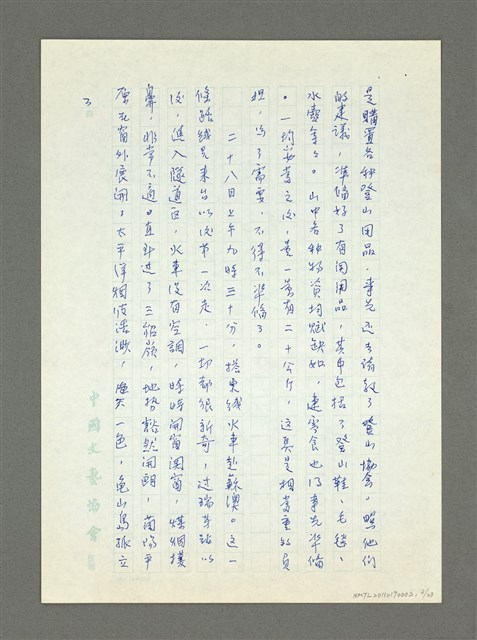 是購置各種登山用品．事先還去請教了登山協會，照他們
的建議，準備好了有関用品，其中包括了登山鞋、毛毯、
水壺等々。山中各種物資均感缺如，連零食也得事先準備
。一切妥當之後，重量有二十公斤，這真是相當重的負
担，為了需要，不得不準備了。
二十八日上午九時三十分，搭東線火車赴蘇澳。這一
條路線是來台以後第一次走．一切都很新奇，过瑞芳站以
後，進入隧道区，火車沒有空調，時時開窗関窗，煤烟撲
鼻，非常不適。直到過了三貂嶺，地勢豁然開朗，蘭陽平
原在窗外展開；太平洋烟波浩渺，海天一色，龜山島孤立
3
中國文藝協會
NMTL20110170002, 3/23